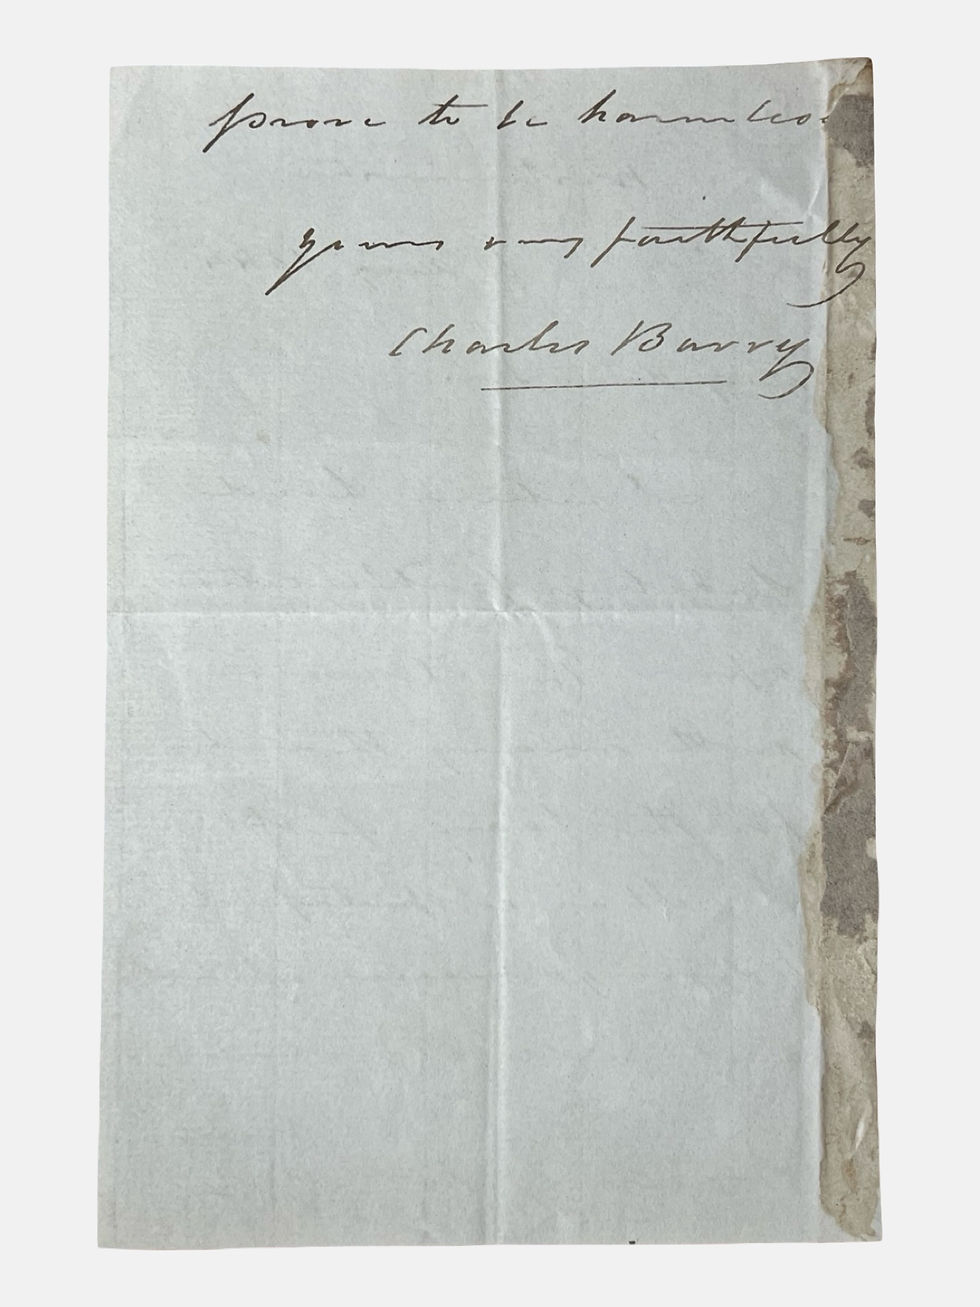 prove to be harmless
yours very faithfully
Charles Barry